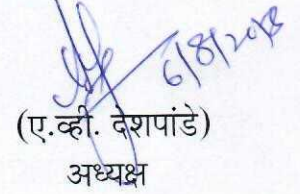 6/8/2018
(ए.व्ही. देशपांडे)
अध्यक्ष